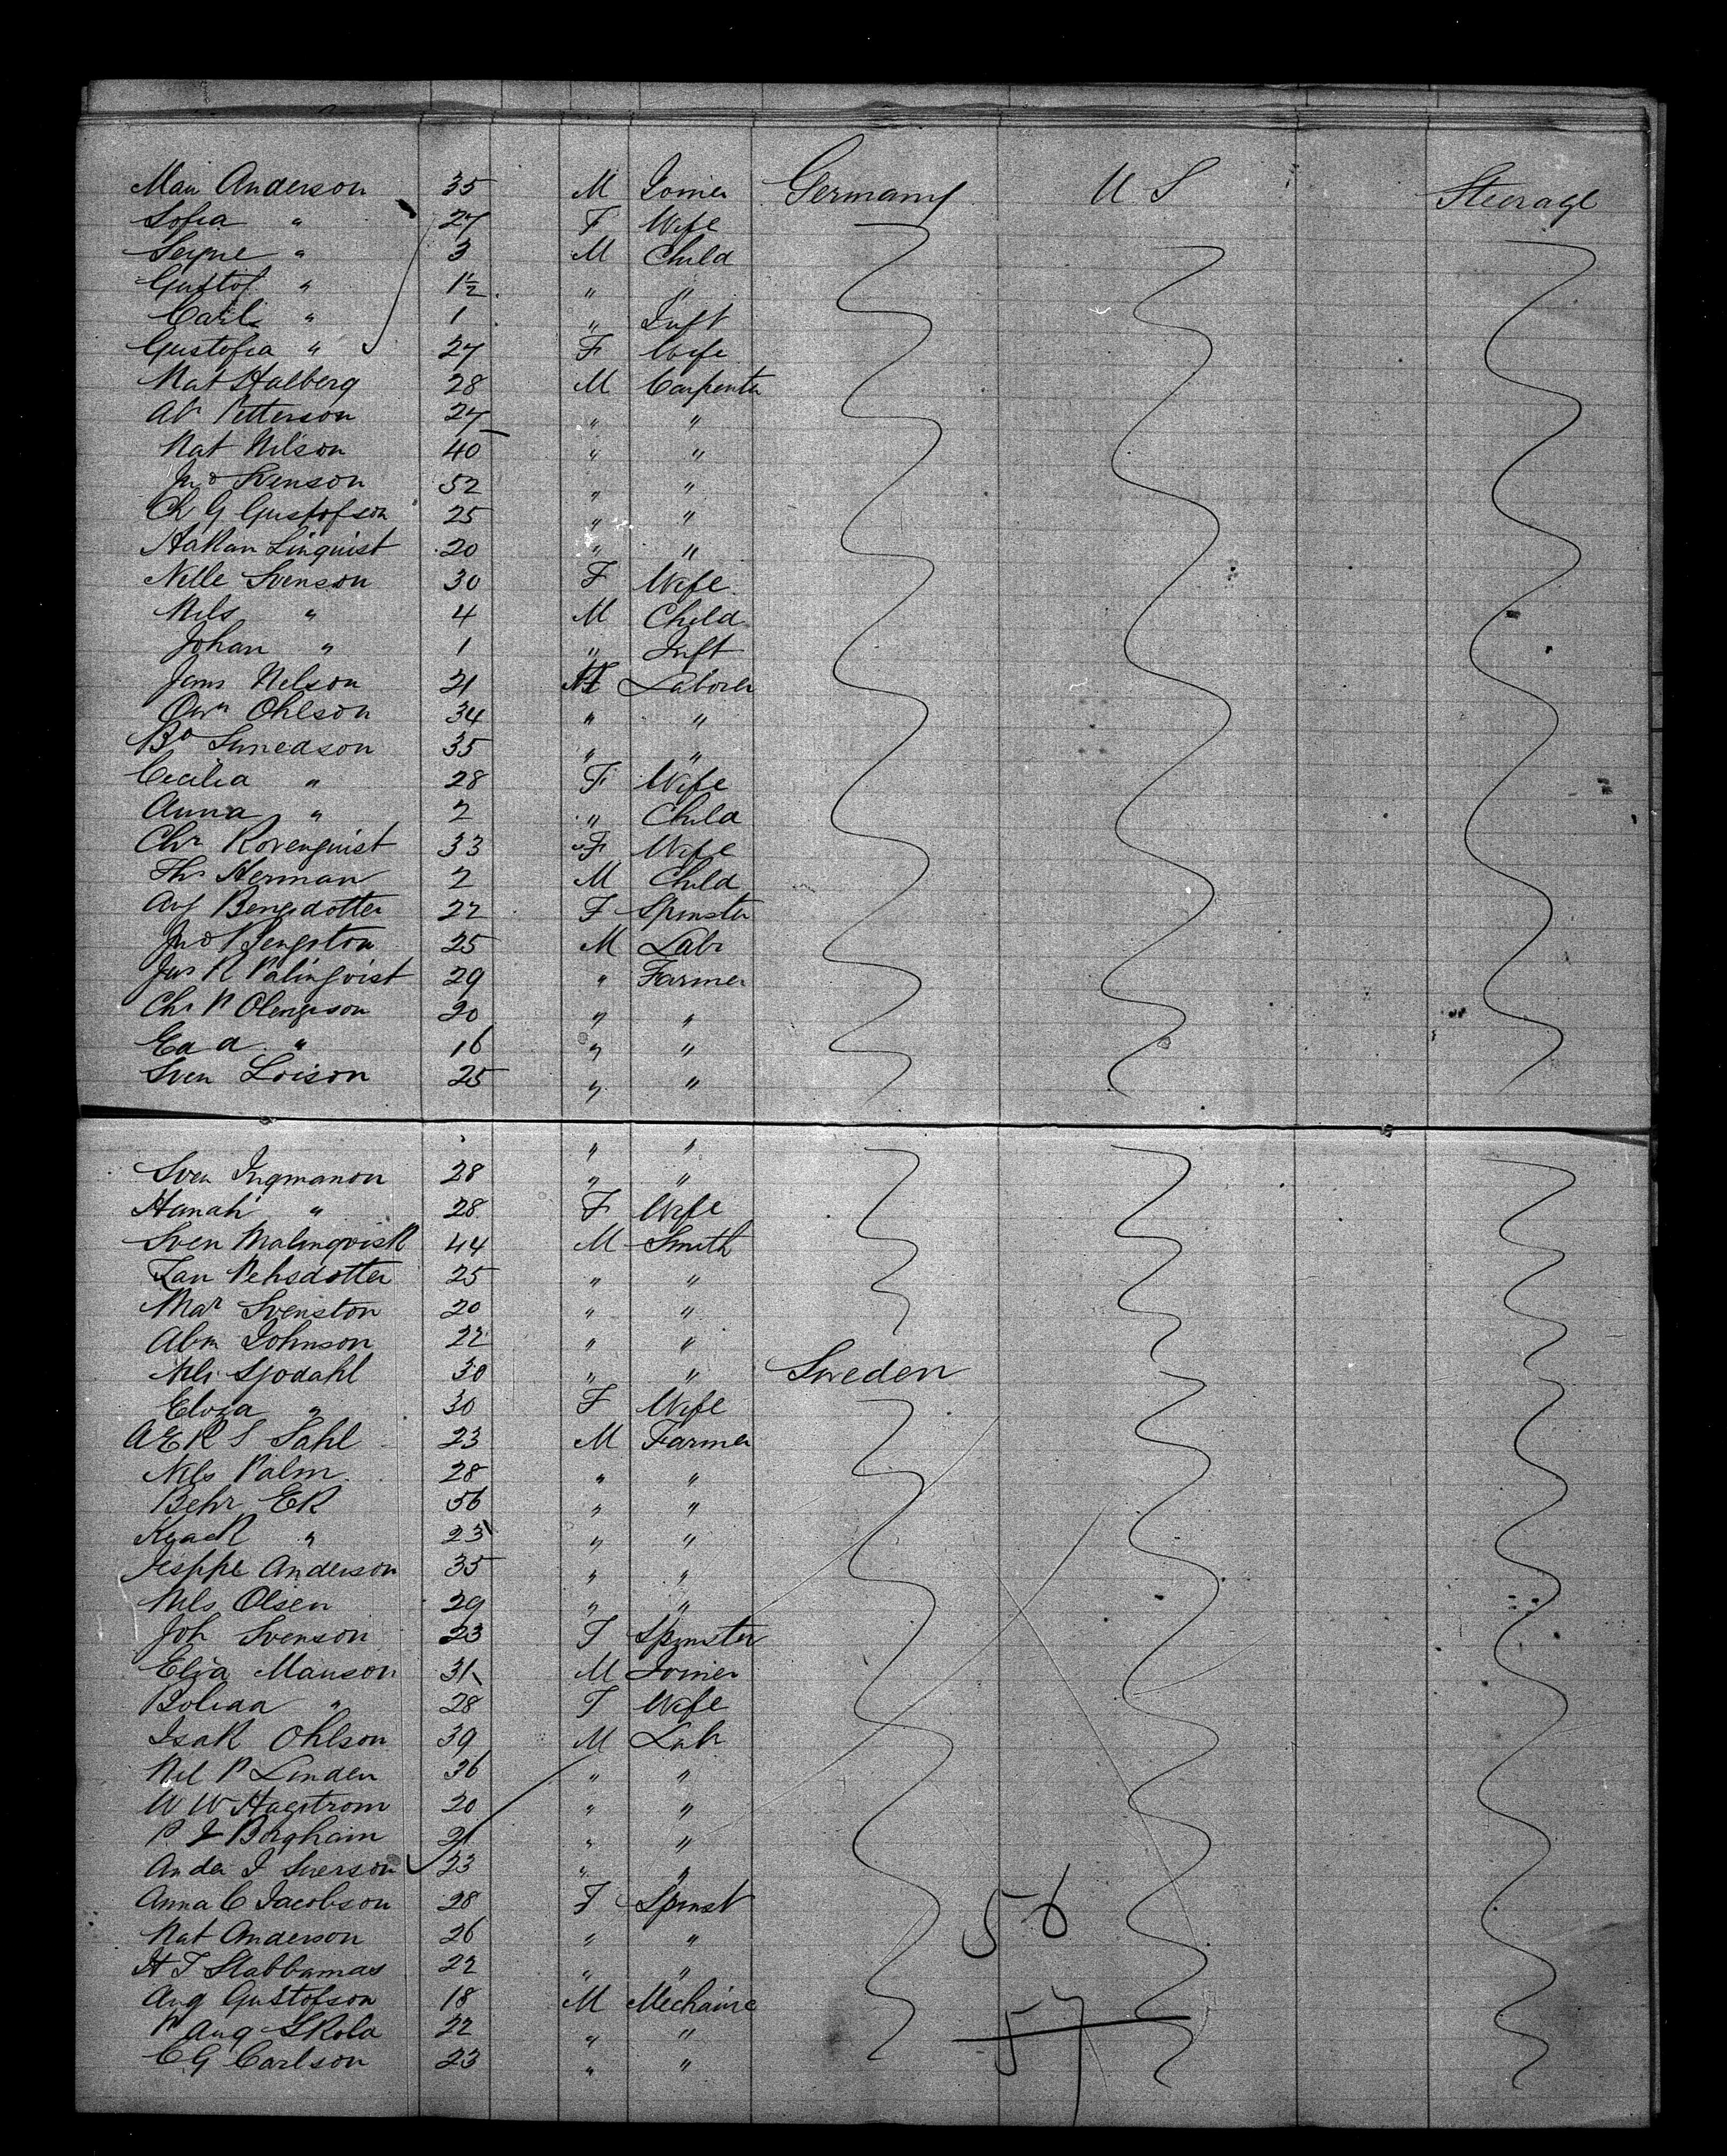 Man Anderson 35 M Joiner Germany U S Steerage
Sofia " 27 F Wife
Seyne " 3 M Child
Gustof " 1½ " "
Carl " 1 " Inft
Gustofia " 27 F Wife
Nat Halberg 28 M Carpenter
Petterson 27 " "
Nat Nilson 40 " "
Jno Svenson 52 " "
Ch G Gustofson 25 " "
Hakan Linquist 20 " "
Nelle Svenson 30 F Wife
Nils " 4 M Child
Johan " 1 " Inft
Jans Nelson 21 M Laborer
Ohlson 34 " "
Bo Sunedson 35 " "
Cecilia " 28 F Wife
Anna " 2 " Child
Chr Rosenquist 33 F Wife
Thr Herman 2 M Child
Aug Bengsdotter 22 F Spinster
Jno Bengston 25 M Labr
Jns P Palinqvist 29 " Farmer
Chr P Olengison 20 " "
Ead a " 16 " "
Sven Loison 25 " "
" "
Sven Ingmanon 28 " "
Hanah " 28 F Wife
Sven Malmqvisk 44 M Smith
Pehsdotter 25 " "
Mar Svenston 20 " "
Abm Johnson 22 " "
Nils Sjodahl 30 " " Sweden
Eloza " 30 F Wife
A E K S Sahl 23 M Farmer
Nils Palm 28 " "
Behr Ek 56 " "
Kjack " 23 " "
Jesppe Anderson 35 " "
Nils Olsen 29 " "
Joh Svenson 23 F Spinster
Elia Manson 31 M Joiner
Bolida " 28 F Wife
Isak Ohlson 39 M Labr
Nil P Linden 36 " "
W W Hagstrom 20 " "
P J Borghain 21 " "
Ander J Sverson 23 " "
Anna C Jacobson 28 F Spinst 56
Nat Anderson 26 " "
H T Slabbamas 22 " "
Aug Gustofson 18 M Mechanic
P Aug Skola 22 " " 57
C G Carlson 23 " "